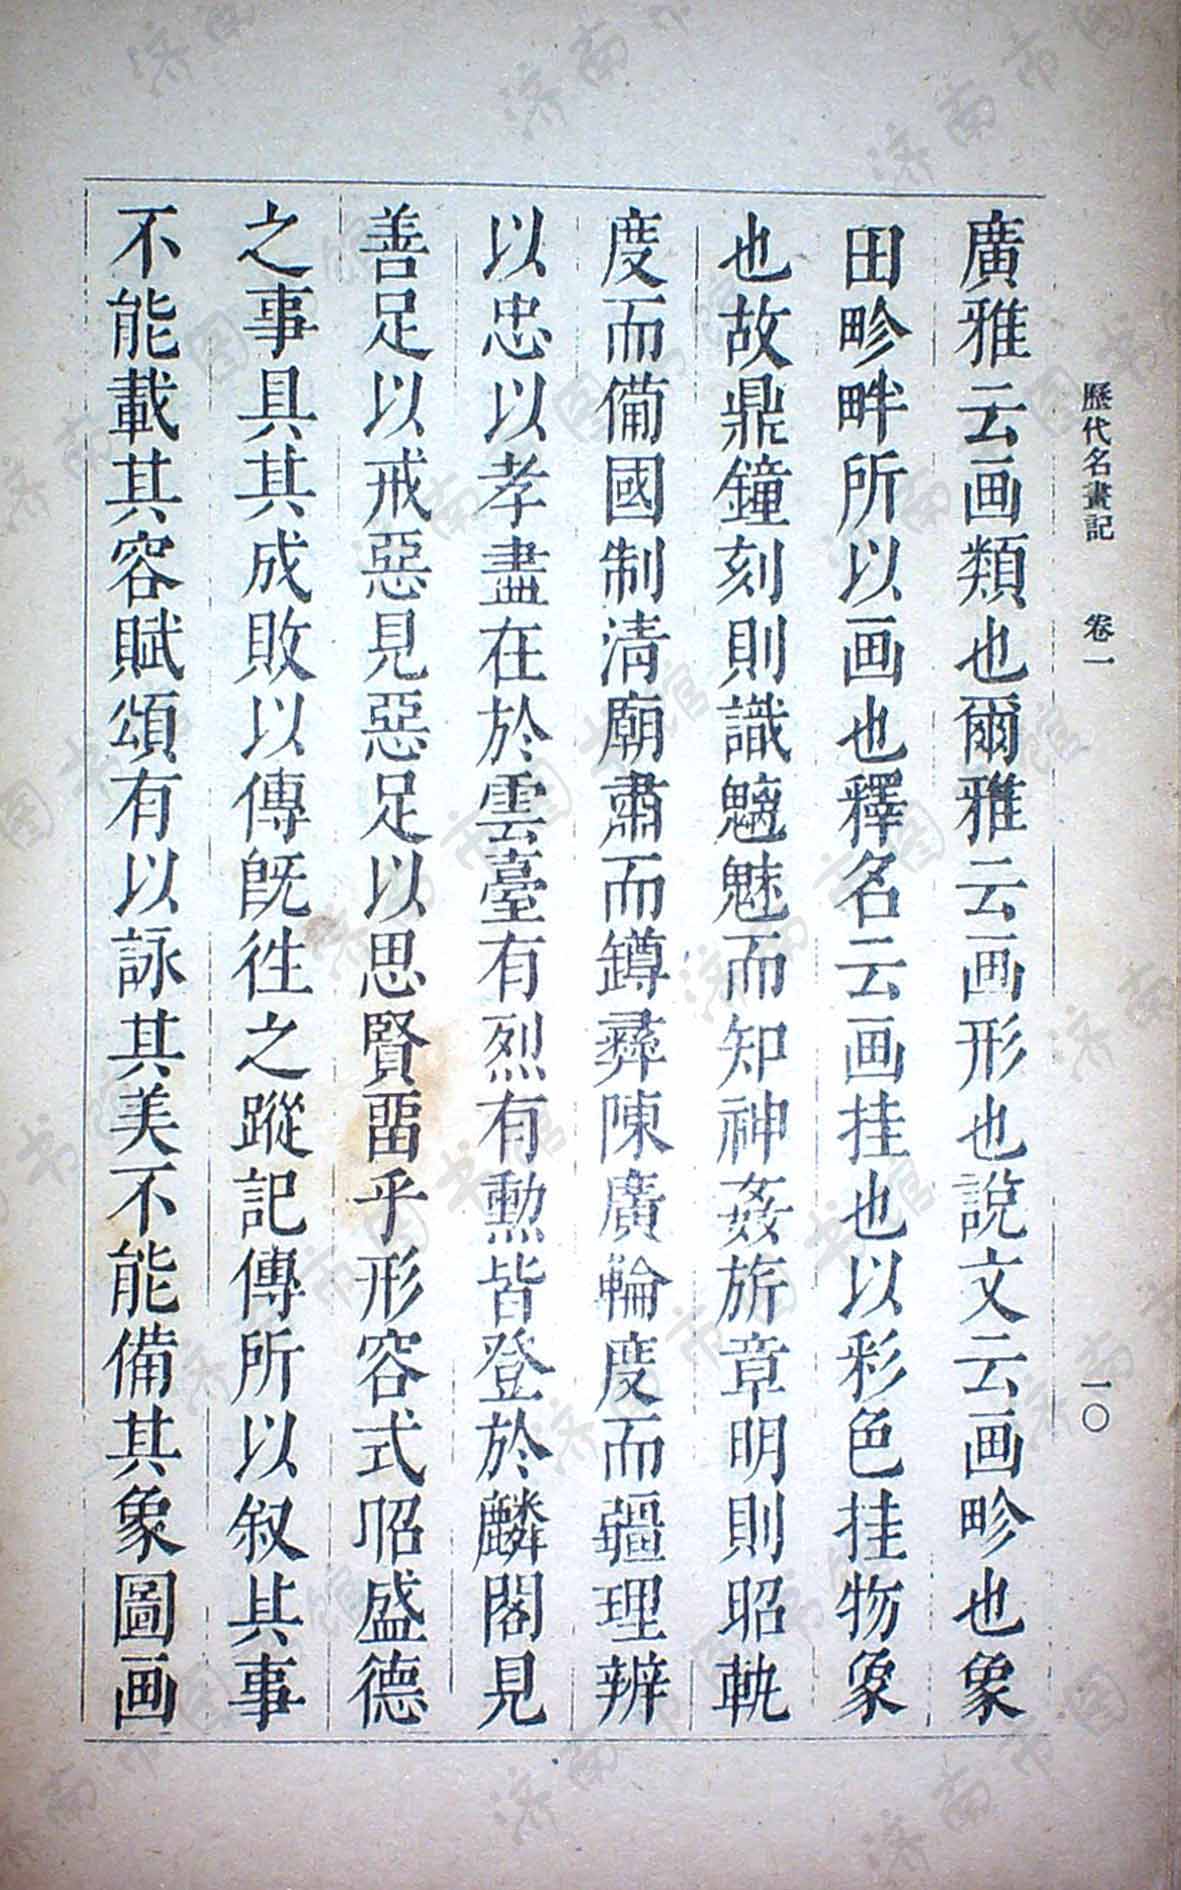 歷代名畫記　卷一　一〇
廣雅云画類也爾雅云画形也說文云画畛也象
田畛畔所以画也釋名云画挂也以彩色挂物象
也故鼎鐘刻則識魑魅而知神姦旂章明則昭軌
度而備國制清廟肅而罇彞陳廣輪度而疆理辨
以忠以孝盡在於雲臺有烈有勳皆登於麟閣見
善足以戒惡見惡足以思賢畱乎形容式昭盛德
之事具其成敗以傳旣徃之蹤記傳所以叙其事
不能載其容賦頌有以詠其美不能備其象圖画
济南市图书馆